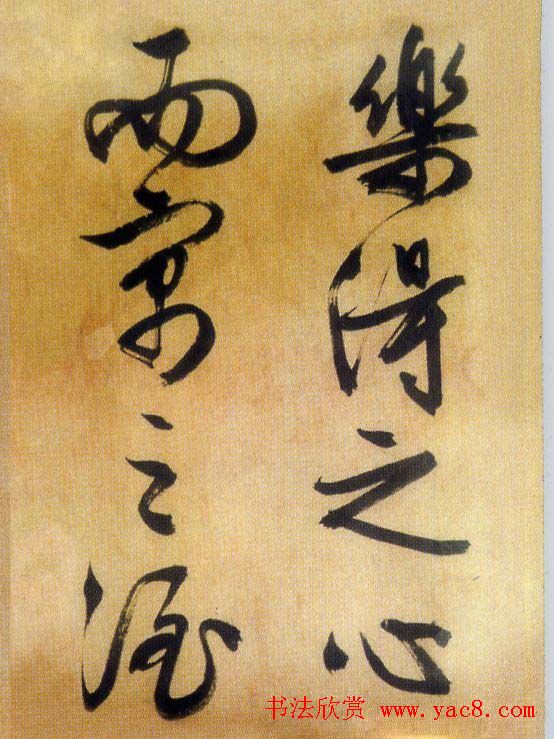 樂得之心
而寓之酒
书法欣赏 www.yac8.com